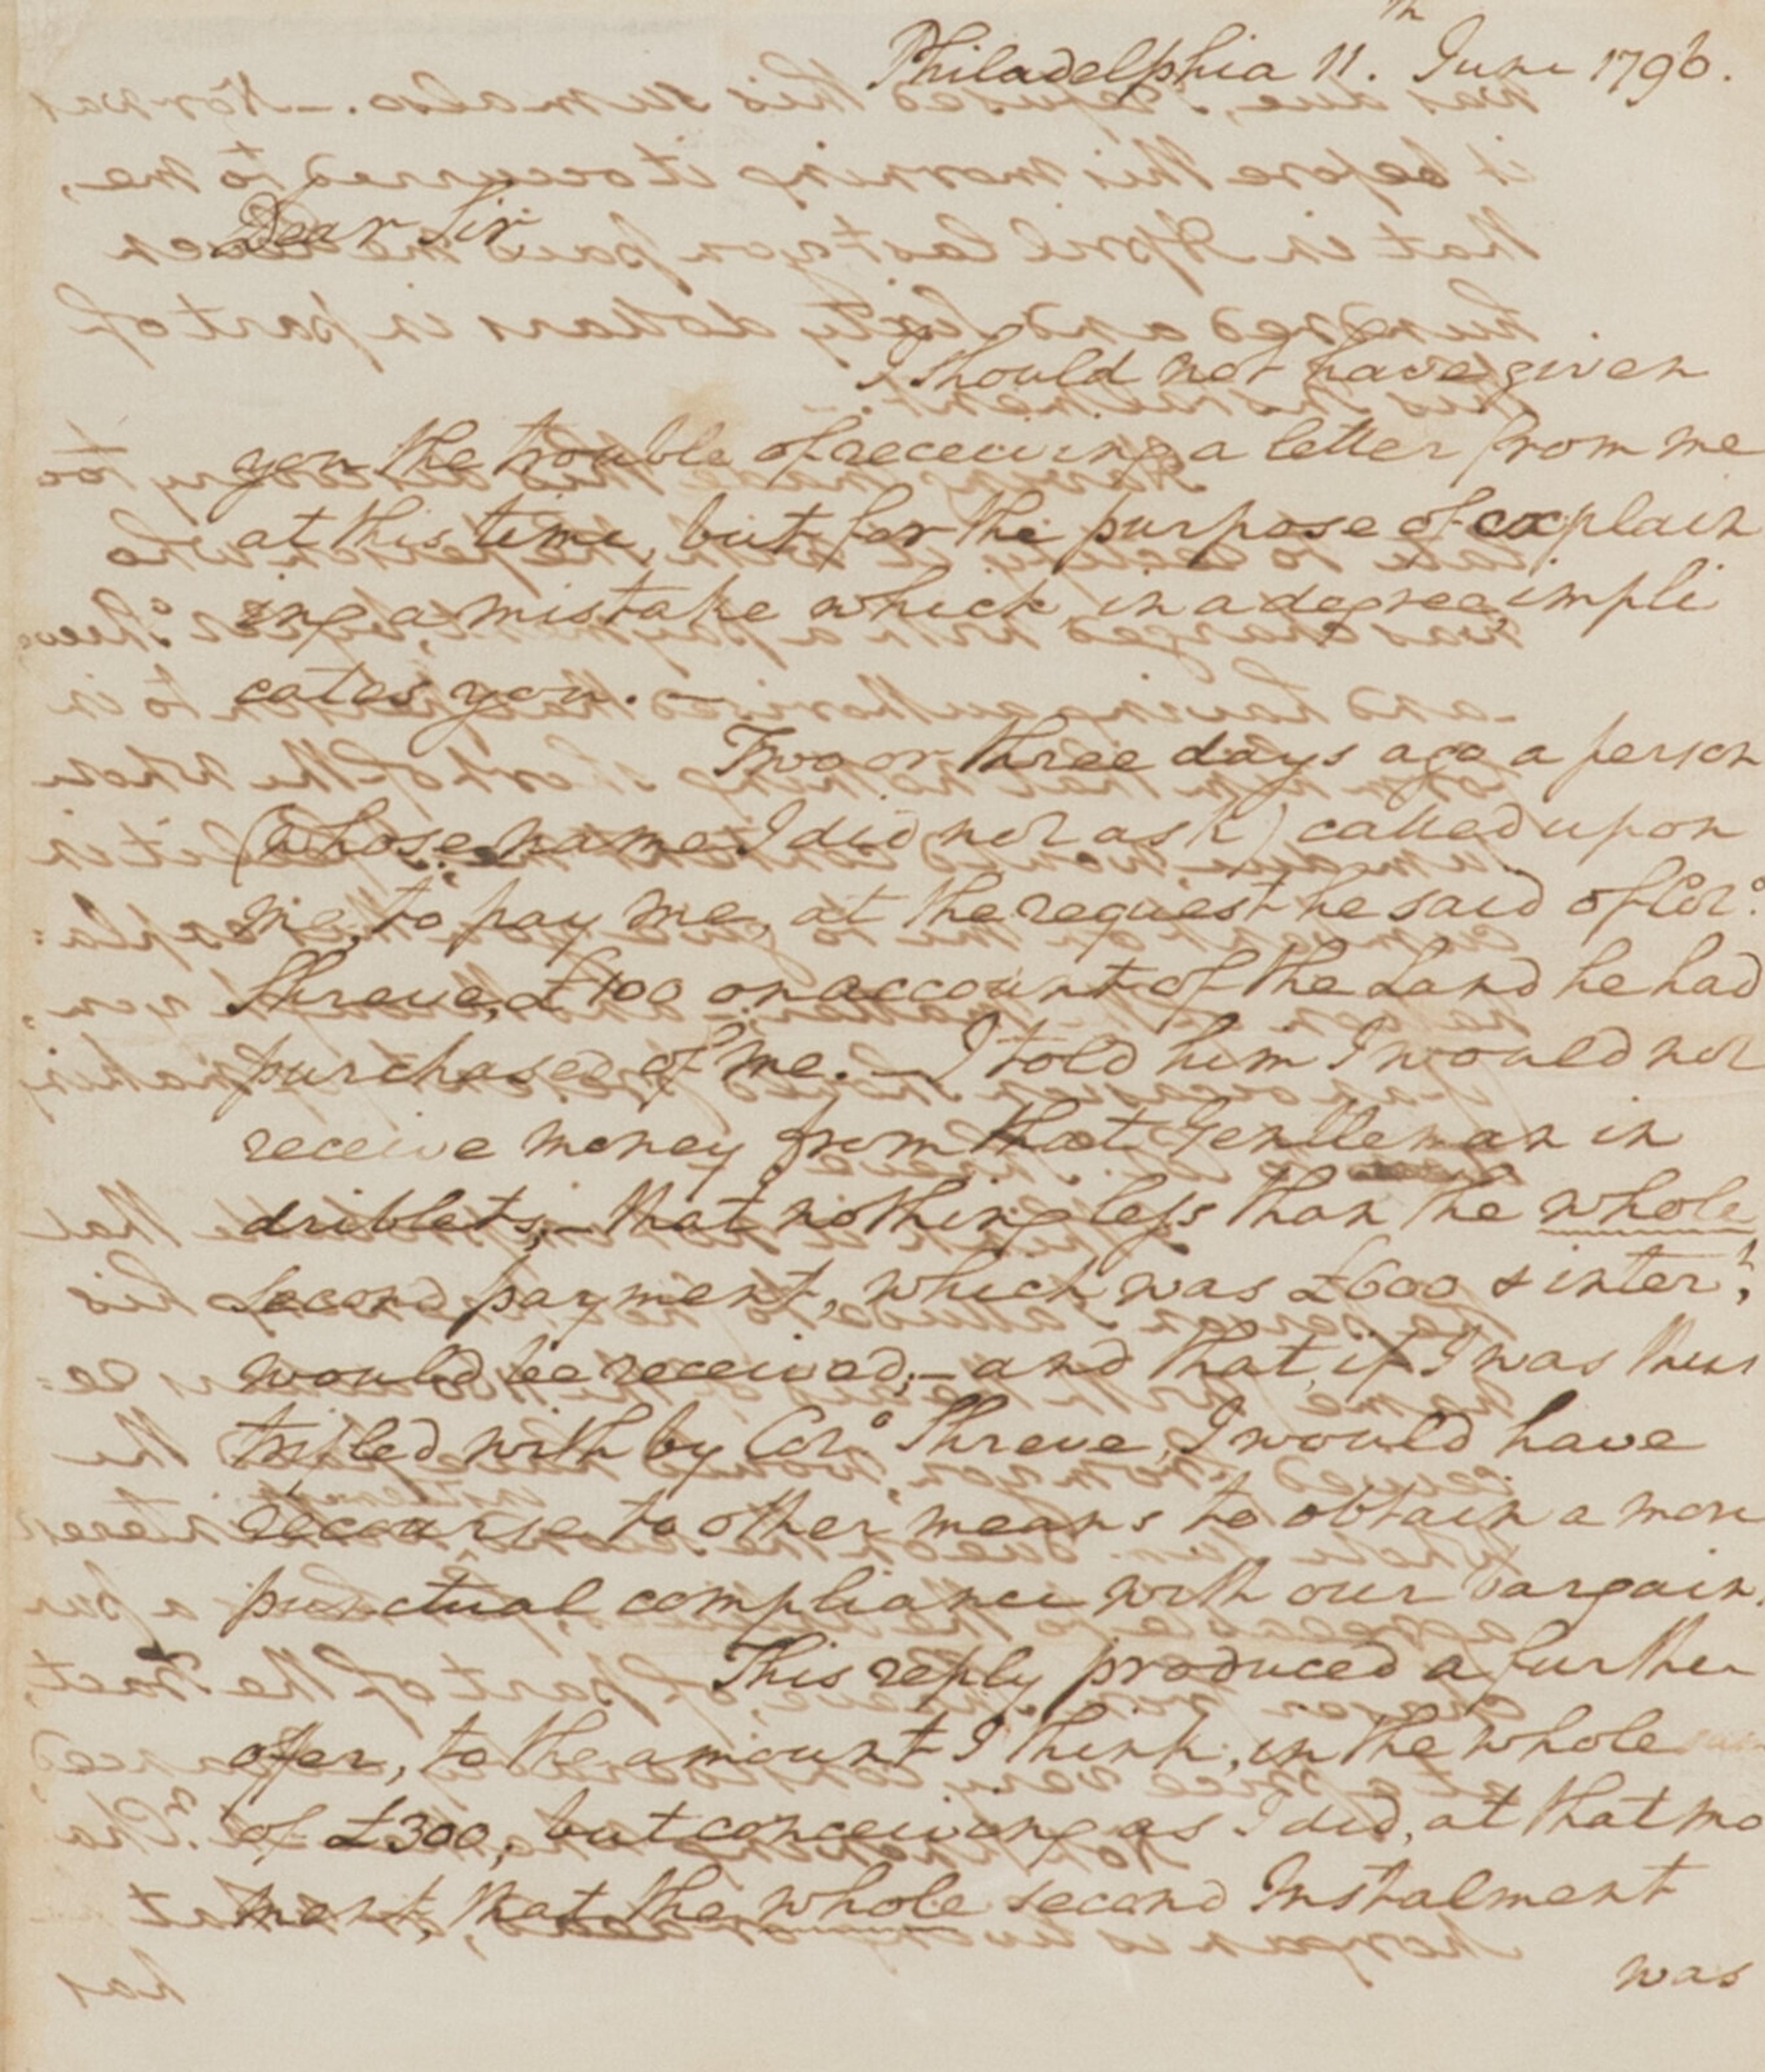 Philadelphia 11.th June 1796.
Dear Sir
I should not have given
you the trouble of receiving a letter from me
at this time, but for the purpose of explain
ing a mistake which, in a degree, impli
cates you. —
Two or three days ago a person
(whose name I did not ask) called upon
me, to pay me, at the request he said of Colo.
Shreve, £100 on account of the Land he had
purchased of me. — I told him I would not
receive money from that Gentleman in
driblets; — that nothing less than the whole
second payment, which was £600 & intert,
would be received; — and that, if I was thus
trifled with by Colo. Shreve, I would have
recourse to other means to obtain a more
punctual compliance with our bargain.
This reply produced a further
offer, to the amount I think, in the whole
of £300, but conceiving as I did, at that mo
ment, that the whole second Instalment
was